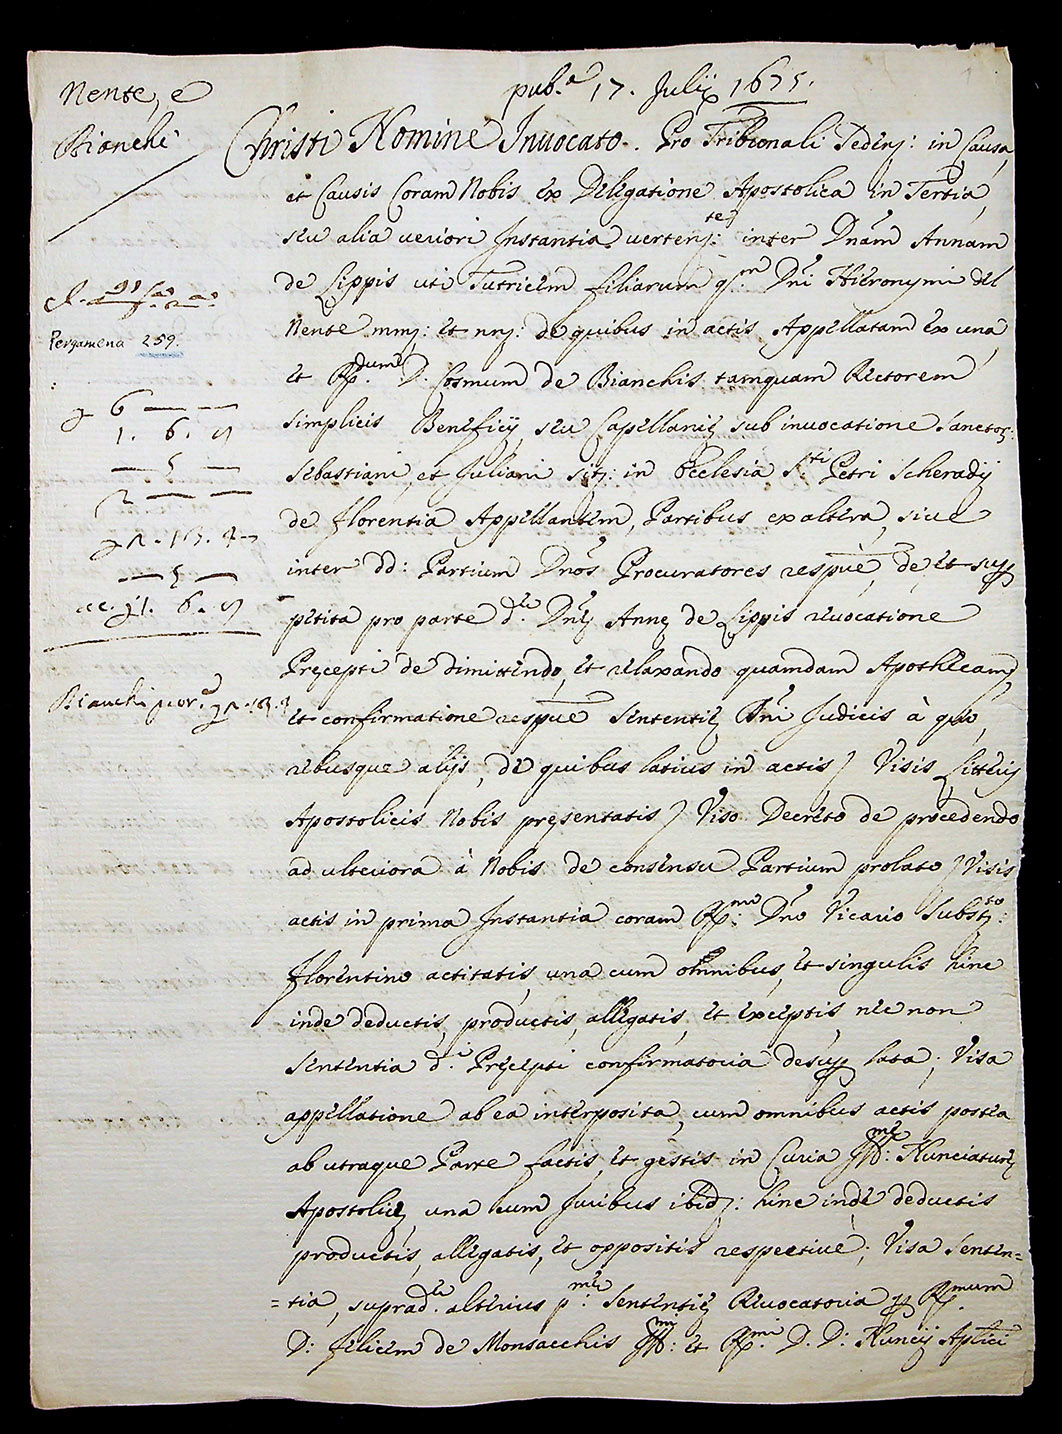 Nente, e
Bianchi
pub.a 17. Julij 1675.
Christi Nomine Inuocato. Pro Tribunali Seden: in Causa,
et Causis Coram Nobis ex Delegatione Apostolica in Tertia,
seu alia ueriori Instantia uerten: inter Dnam Annam
de Lippis uti Tutricem filiarum q.m Dni Hieronymi del
Nente mm: et nn: de quibus in actis Appellatam ex una,
et R.dum D. Cosmum de Bianchis tamquam Rectorem
simplicis Beneficij, seu Capellanię sub inuocatione Sanctor:
Sebastiani, et Juliani sit: in Ecclesia S.ti Petri Scheradij
de florentia Appellantem, Partibus ex altera, siue
inter dd: Partium Dnos Procuratores respue, de, et sup
petita pro parte d.e Dnę Annę de Lippis reuocatione
Pręcepti de dimittendo, et relaxando quamdam Apothecam,
et confirmatione respue Sententię Dni Judicis à quo,
rebusque alijs, de quibus latius in actis; Visis Litteris
Apostolicis Nobis pręsentatis; Viso Decreto de procedendo
ad ulteriora à Nobis de consensu Partium prolato; Visis
actis in prima Instantia coram R.mo Dno Vicario Subst.to
florentino actitatis, una cum omnibus, et singulis hinc
inde deductis, productis, allegatis, et exceptis, nec non
Sententia d.i Pręcepti confirmatoria desup lata; Visa
appellatione ab ea interposita, cum omnibus actis postea
ab utraque Parte factis, et gestis in Curia Ill.mę Nunciaturę
Apostolicę, una cum Juribus ibid: hinc inde deductis
productis, allegatis, et oppositis respectiue; Visa Senten=
=tia, suprad.ę alterius p.mę Sententię Reuocatoria p R.mum
D: felicem de Monsacchis Ill.mi et R.mi D. D: Nuncij Aplici
Pergamena 259.
6
1. 6. 9
5
2
5
1. 6. 9
Bianchi